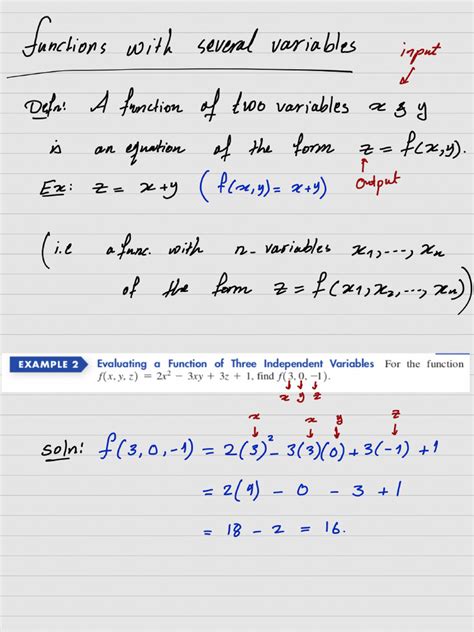 functions with several variables
input
Defn: A function of two variables x & y
is an equation of the form z = f(x,y).
Ex: z = x+y ( f(x,y) = x+y)
Output
(i.e a func. with n-variables x₁,---, xₙ
of the form z = f(x₁,x₂,---, xₙ))
EXAMPLE 2 Evaluating a Function of Three Independent Variables For the function
f(x, y, z) = 2x² − 3xy + 3z + 1, find f(3, 0, −1).
x y z
x x y z
soln: f(3,0,-1) = 2(3)² - 3(3)(0) + 3(-1) + 1
= 2(9) - 0 - 3 + 1
= 18 - 2 = 16.